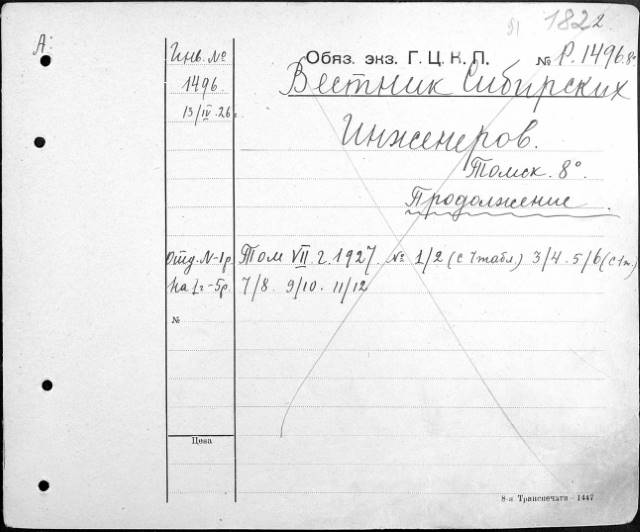 1822
А:
Инв. №
1496
13/IV.26.
Обяз. экз. Г. Ц. К. П. № Р.1496.8°
Вестник Сибирских
Инженеров.
Томск. 8°.
Продолжение.
Отд. N-1р. Том VII. г. 1927. № 1/2 (с 1 табл.) 3/4. 5/6 (с 1 т.)
На 1 г-5р. 7/8. 9/10. 11/12
№
Цена
8-я Транспечати 1447